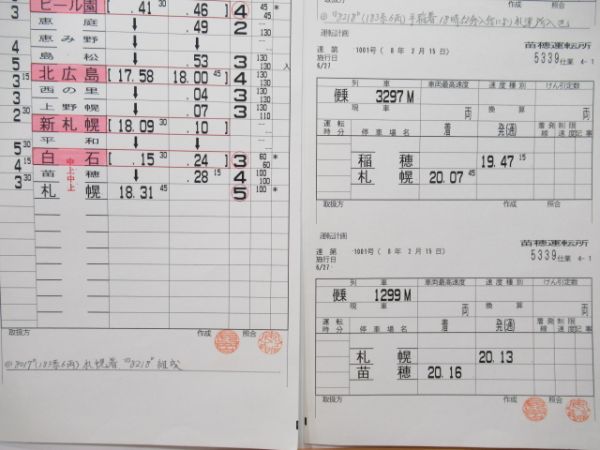 ビール園 [ .41 30 .46 ] 4 45 *
恵庭 .49 2 130
恵み野
島松 .53 3 130 130 入
3 15 北広島 [ 17.58 18.00 45 ] 4 130
西の里 .04 3 130
上野幌 .07 3 130
2 30 新札幌 [ 18.09 30 .10 ]
平和
白石 [ .15 30 .24 ] 3 60 60 *
中上中上
苗穂 .28 15 4 100
3 札幌 18.31 45 5 100 *
取扱方
作成
照合
運転計画
達第 1001号 ( 8年 2月 15日)
施行日
6/27
苗穂運転所
5339仕業 4-1
列車
車両最高速度
速度種別
けん引定数
便乗 3297M
現
換算
両
運転時分
停車場名
着
発(通)
着発線
制限速度
記事
稲穂 19.47 15
札幌 20.07 45
取扱方
作成
照合
運転計画
達第 1001号 ( 8年 2月 15日)
施行日
6/27
苗穂運転所
5339仕業 4-1
列車
車両最高速度
速度種別
けん引定数
便乗 1299M
現
換算
両
運転時分
停車場名
着
発(通)
着発線
制限速度
記事
札幌 20.13
苗穂 20.16
取扱方
作成
照合